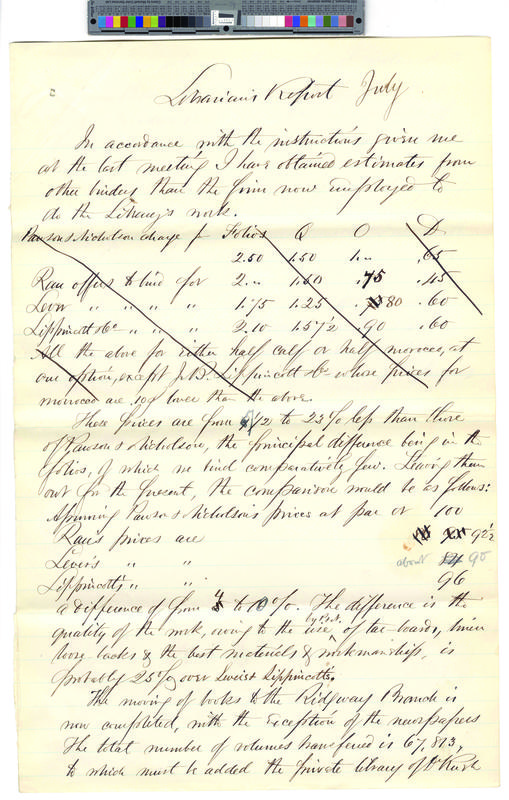 Librarian's Report July.
In accordance with the instructions given me
at the last meeting I have obtained estimates from
other binders than the firm now employed to
do the Library's work.
Pawson & Nicholson charge for Folios Q O D
2.50 1.50 1.— .65
Rau offers to bind for 2.— 1.60 .75 .45
Lever " " " " 1.75 1.25 .80 .60
Lippincott & Co " " " 2.10 1.57½ .90 .60
All the above for either half calf or half morocco, at
our option, except J.B. Lippincott & Co whose prices for
morocco are 10¢ lower than the above.
These prices are from ½ to 23% less than those
of Pawson & Nicholson, the principal difference being in the
folios, of which we bind comparatively few. Leaving them
out for the present, the comparison would be as follows:
Assuming Pawson & Nicholson's prices at par or 100
Rau's prices are 92½
Lever's " " about 90
Lippincott's " " 96
a difference of from 4 to 10%. The difference in the
quality of the work, owing to the use, by P.&N. of tar-boards, linen
loose backs & the best materials & workmanship, is
probably 25% over Lewis' & Lippincott's.
The moving of books to the Ridgway Branch is
now completed, with the exception of the newspapers
The total number of volumes transferred is 67,813,
to which must be added the private library of Dr Rush